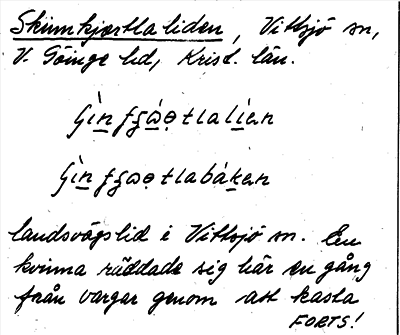 Skinnkjortla liden, Vittsjö sn,
V. Göinge hd, Krist. län.
landsvägslid i Vittsjö sn. En
kvinna räddade sig här en gång
från vargar genom att kasta
FORTS!